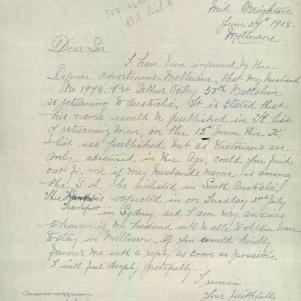 Mid Brighton
June 24th 1918.
Melbourne
Dear Sir
I have been informed by the
Defence Department, Melbourne, that my husband
No 1978. Pvt Arthur 50th Battalion
is returning to Australia. It is stated that
his name would be published in the list
of returning men, on the 12th June. The
list was published but as Victorians are
only advertised in the Age, could you find
out for me if my husbands name is among
the S. A. He enlisted in South Australia.
The Transport is expected in on Tuesday 2nd July
in Sydney, and I am very anxious
to know if my husband
to stay in Melbourne. If you would kindly
favour me with a reply as soon as possible
I will feel deeply grateful.
I remain
Your faithfully